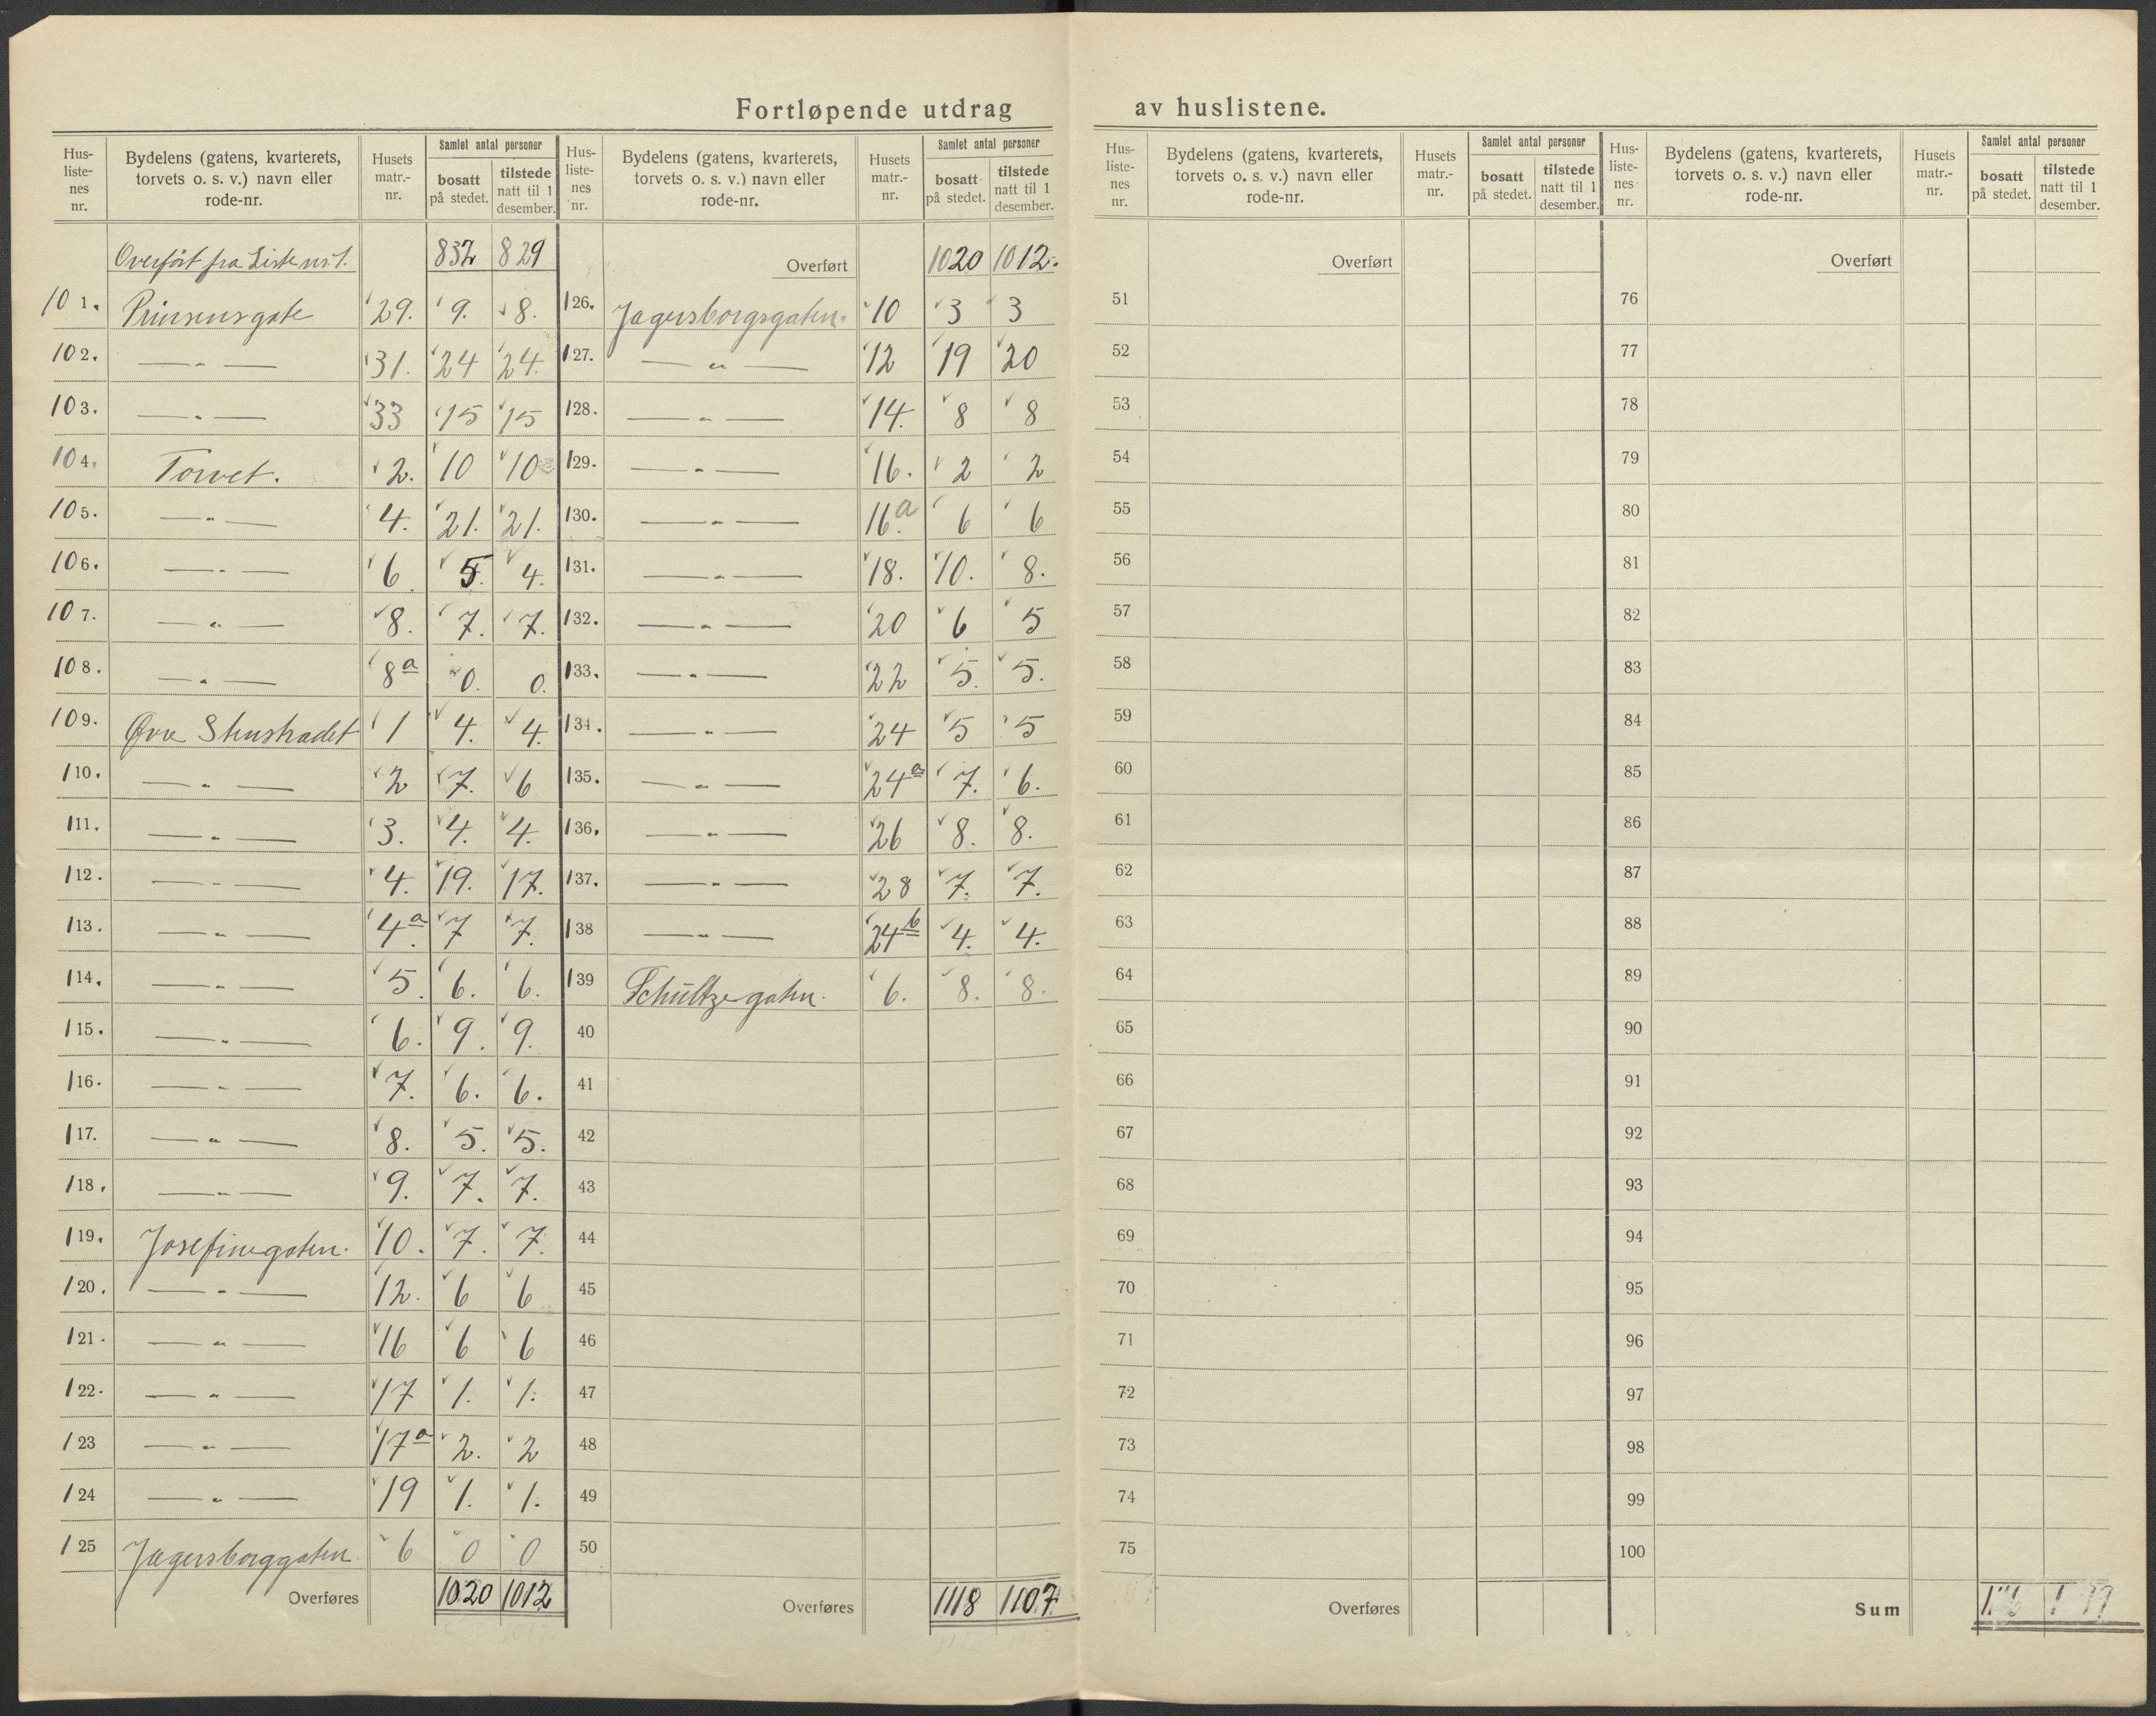 Fortløpende utdrag av huslistene.
Hus-liste-nes nr. | Bydelens (gatens, kvarterets, torvets o. s. v.) navn eller rode-nr. | Husets matr.-nr. | Samlet antal personer bosatt på stedet. | tilstede natt til 1 desember.
Overført fra Liste nr. 1. 832 829
101. Prinsensgate 29. 9. 8.
102. — " — 31. 24 24.
103. — " — 33 15 15
104. Torvet. 2. 10 10
105. — " — 4. 21. 21.
106. — " — 6. 5. 4.
107. — " — 8. 7. 7.
108. — " — 8a 0. 0.
109. Øvre Stenstradet 1 4. 4.
110. — " — 2 7. 6
111. — " — 3. 4. 4.
112. — " — 4. 19. 17.
113. — " — 4a. 7 7.
114. — " — 5. 6. 6.
115. — " — 6. 9. 9.
116. — " — 7. 6. 6.
117. — " — 8. 5. 5.
118. — " — 9. 7. 7.
119. Josefinegaten. 10. 7. 7.
120. — " — 12. 6 6
121. — " — 16 6 6
122. — " — 17 1. 1.
123 — " — 17a 2. 2
124 — " — 19 1. 1.
125 Jægersborggaten 6 0 0
Overføres 1020 1012
Hus-liste-nes nr. | Bydelens (gatens, kvarterets, torvets o. s. v.) navn eller rode-nr. | Husets matr.-nr. | Samlet antal personer bosatt på stedet. | tilstede natt til 1 desember.
Overført 1020 1012.
126. Jagersborgsgaten. 10 3 3
127. — " — 12 19 20
128. — " — 14. 8 8
129. — " — 16. 2 2
130. — " — 16a. 6 6
131. — " — 18. 10. 8.
132. — " — 20 6 5
133. — " — 22 5. 5.
134. — " — 24 5 5
135. — " — 24a 7. 6.
136. — " — 26 8. 8.
137. — " — 28 7. 7.
138 — " — 24b 4. 4.
139 Schültzegaten. 6. 8. 8.
40
41
42
43
44
45
46
47
48
49
50
Overføres 1118 1107.
Hus-liste-nes nr. | Bydelens (gatens, kvarterets, torvets o. s. v.) navn eller rode-nr. | Husets matr.-nr. | Samlet antal personer bosatt på stedet. | tilstede natt til 1 desember.
Overført
51
52
53
54
55
56
57
58
59
60
61
62
63
64
65
66
67
68
69
70
71
72
73
74
75
Overføres
Hus-liste-nes nr. | Bydelens (gatens, kvarterets, torvets o. s. v.) navn eller rode-nr. | Husets matr.-nr. | Samlet antal personer bosatt på stedet. | tilstede natt til 1 desember.
Overført
76
77
78
79
80
81
82
83
84
85
86
87
88
89
90
91
92
93
94
95
96
97
98
99
100
Sum